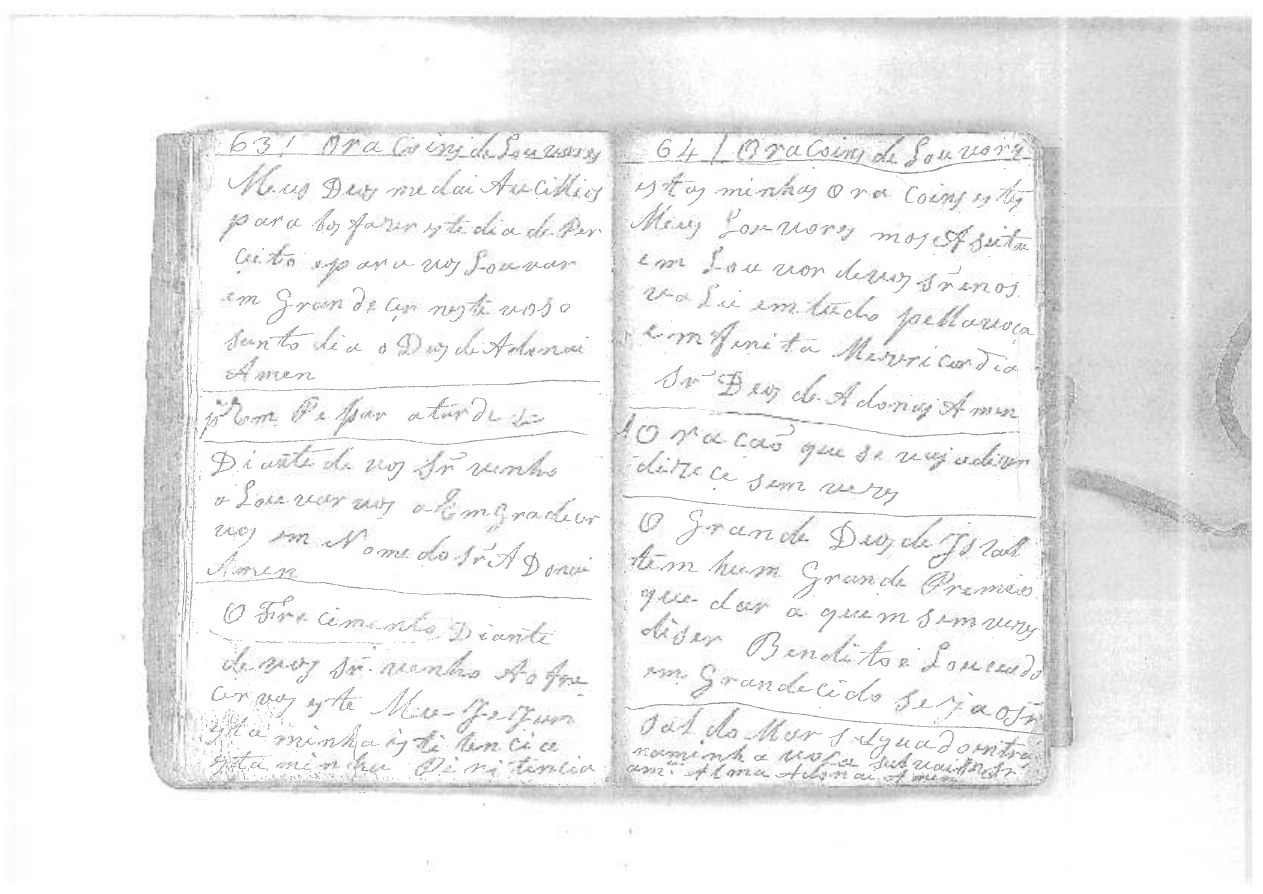 63 / Ora Coins de Louvores
Meus Deos me dai Aucillios
para bos fazer este dia de Per
ceito e para vos Louvar
em Grandecer neste voso
santo dia o Deos de Adonai
Amen
Em Pe par atarde
Diante de vos Sr̃ venho
a Louvar vos a Emgradecer
vos em Nome do Sr̃ A Donai
Amen
O Fire cimento Diante
de vos Sr̃. venho Ao fire
cer vos este Meu JeJum
esta minha isti tencia
esta minha Penitencia
64 / Ora Coins de Louvores
estas minhas Ora Coins estes
Meus Louvores mos Aseita
em Louvor de vos Sr̃ e nos
va Li em tudo pella vosa
emfenita Mesericordia
Sr̃ Deos de Adonay Amen
Ora caõ que se vaj a diser
direce sem veses
O Grande Deos de Jsrael
tem hum Grande Premio
que dar a quem sem veses
diser Bendito e Louvado
em Grandecido Seja o Sr̃
Sal do Mar salguado entra
na minha vosa salvais Sr̃
am.ª Alma Adonai Amen